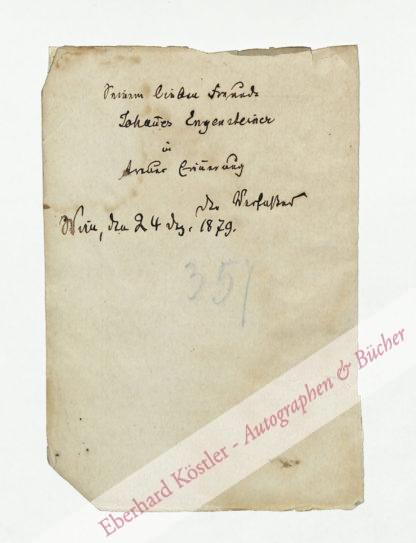 Seinem lieben Freunde
Johannes Engensteiner
in
treuer Erinnerung
der Verfasser
Wien, den 24 Dez. 1879.
357
Eberhard Köstler - Autographen & Bücher